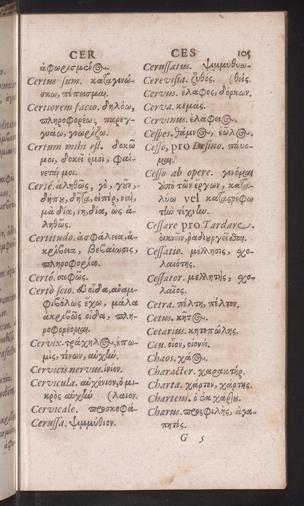 CER
CES
105
ἀφωρισμένος.
Certus sum. καταγινώ-
σκω, πέπεισμαι.
Certiorem facio. δηλόω,
πληροφορέω, παρεγ-
γυάω, γνωρίζω.
Certum mihi est. δοκεῖ
μοι, δοκεῖ ἐμοί, φαί-
νεταί μοι.
Certè. ἀληθῶς, γὲ, γοῦν,
δήπου, δῆτα, εἴπερ, ναὶ,
μὰ δία, νὴ δία, ὡς ἀ-
ληθῶς.
Certitudo. ἀσφάλεια, ἀ-
κρίβεια, βεβαίωσις,
πληροφορία.
Certò. σαφῶς.
Certò scio. εὖ οἶδα, ἀναμ-
φιβόλως ἔχω, μάλα
ἀκριβῶς οἶδα, πλη-
ροφορέομαι.
Cervix. τράχηλος, ἐπω-
μὶς, τένων, αὐχήν.
Cervicis nervus. ἰνίον.
Cervicula. αὐχένιον, ὁ μι-
κρὸς αὐχήν (λαιον.
Cervicale. προσκεφά-
Cerussa. ψιμμύθιον.
Cerussatus. ψιμμυθιω-
Cerevisia. ζύθος. (θείς.
Cervus. ἔλαφος, δόρκων.
Cerva. κεμάς.
Cervinus. ἐλάφειος.
Cespes. θάμνος, ἕωλος.
Cesso, pro Desino. παύο-
μαι.
Cesso ab opere. γίνομαι
ἀπὸ τῶν ἔργων, κατα-
λύω vel καταστρέφω
τὴν τέχνην.
Cessare pro Tardare.
ὀκνεῖν, ῥᾳδιουργεῖσθαι.
Cessatio. μέλλησις, σχο-
λαιότης.
Cessator. μελλητὴς, σχο-
λαῖος.
Cetra. πέλτη, πέλτον.
Cetus. κῆτος.
Cetarius. κητοπώλης.
Ceu. οἷον, οἱονεί.
Chaos. χάος.
Character. χαρακτήρ.
Charta. χάρτον, χάρτης.
Charteus. ὁ ἐκ χάρτου.
Charus. προσφιλὴς, ἀγα-
πητός.
G 5